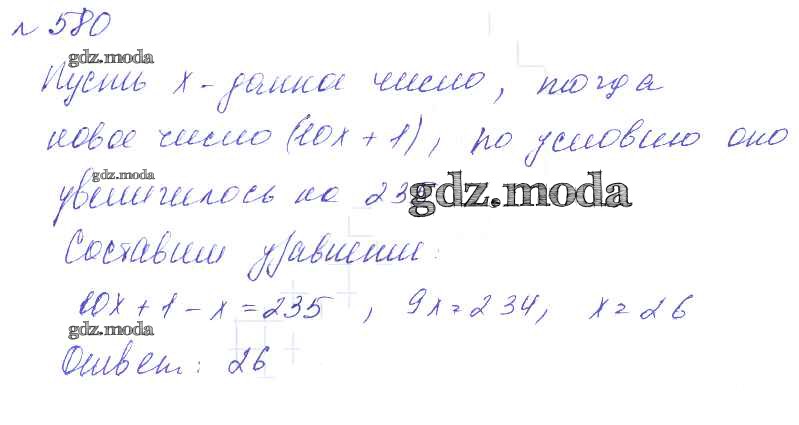 № 580
gdz.moda
Пусть x - данное число, тогда
новое число (10x + 1), по условию оно
gdz.moda
увеличилось на 235
gdz.moda
Составим уравнение:
10x + 1 - x = 235, 9x = 234, x = 26
gdz.moda
Ответ: 26